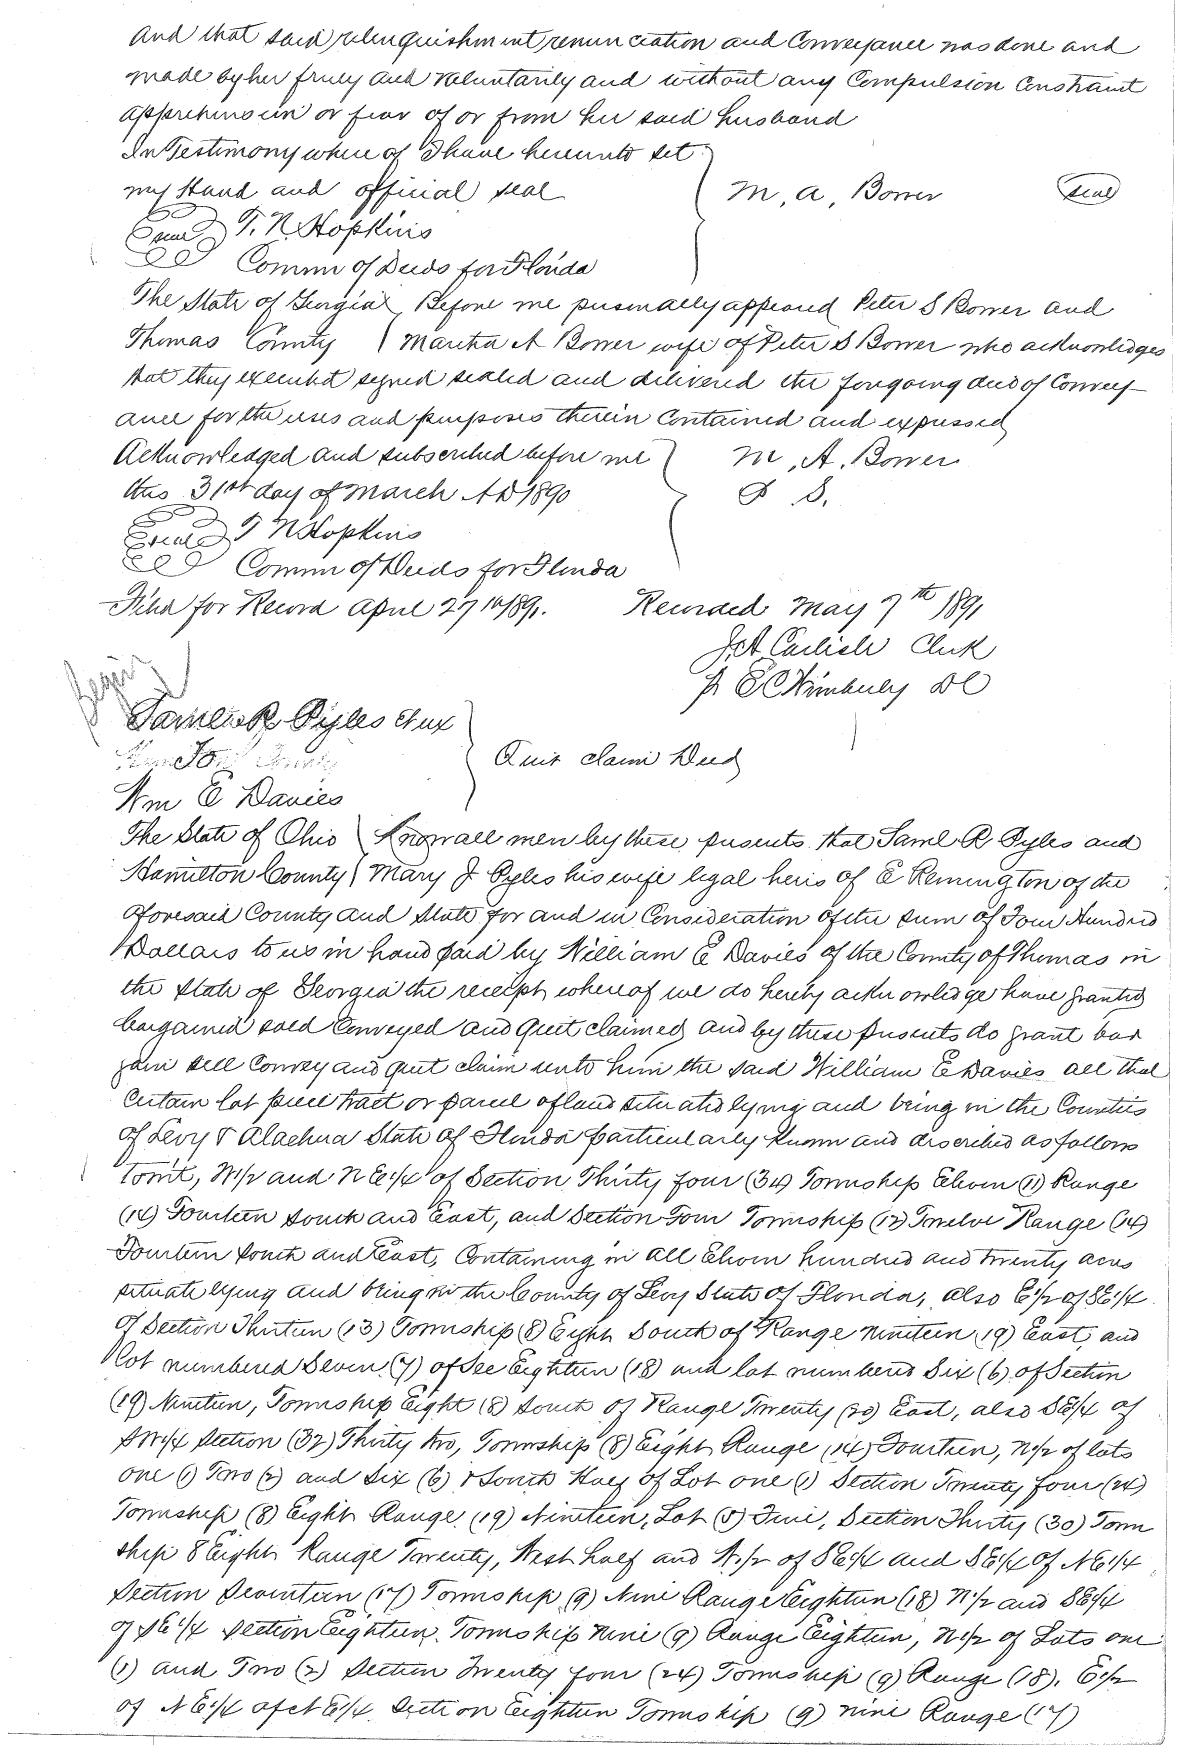 and that said relinquishment renunciation and Conveyance was done and
made by her freely and voluntarily and without any Compulsion Constraint
apprehension or fear of or from her said husband
In Testimony where of I have hereunto set
my Hand and official seal
M, A, Bower
seal
seal T. N. Hopkins
Comm of Deeds for Florida
The State of Georgia Before me personally appeared Peter S Bower and
Thomas County Martha A Bower wife of Peter S Bower who acknowledges
that they executed signed sealed and delivered the foregoing deed of Convey-
ance for the uses and purposes therein Contained and expressed
Acknowledged and subscribed before me
M, A. Bower
this 31st day of March AD 1890
P S.
seal T N Hopkins
Comm of Deeds for Florida
Filed for Record April 27th 1891. Recorded May 7th 1891
J.A. Carlisle Clerk
pr E C Wimberly DC
Begin
Samuel R Pyles et ux
To
Quit claim Deed
Wm E Davies
The State of Ohio Know all men by these presents that Saml R Pyles and
Hamilton County Mary J Pyles his wife legal heirs of E Remington of the
aforesaid County and State for and in Consideration of the sum of Four Hundred
Dollars to us in hand paid by William E Davies of the County of Thomas in
the State of Georgia the receipt whereof we do hereby acknowledge have granted
bargained sold Conveyed and Quit claimed and by these presents do grant bar
gain sell Convey and quit claim unto him the said William E Davies all that
Certain lot piece tract or parcel of land situated lying and being in the Counties
of Levy & Alachua State of Florida particularly known and described as follows
towit, W1/2 and N E1/4 of Section Thirty four (34) Township Eleven (11) Range
(14) Fourteen south and East, and Section Four Township (12) Twelve Range (14)
Fourteen south and East, Containing in all Eleven hundred and twenty acres
situate lying and being in the County of Levy State of Florida, also E1/2 of SE1/4
of Section Thirteen (13) Township (8) Eight South of Range nineteen (19) East, and
lot numbered Seven (7) of Sec Eighteen (18) and lot numbered Six (6) of Section
(19) Nineteen, Township Eight (8) South of Range Twenty (20) East, also SE1/4 of
SW1/4 Section (32) Thirty two, Township (8) Eight Range (14) Fourteen, N1/2 of lots
one (1) Two (2) and Six (6) & South Half of Lot one (1) Section Twenty four (24)
Township (8) Eight Range (19) Nineteen, Lot (5) Five, Section Thirty (30) Town
ship 8 Eight Range Twenty, West half and W1/2 of SE1/4 and SE1/4 of NE1/4
Section Seventeen (17) Township (9) Nine Range Eighteen (18) N1/2 and SE1/4
of SE1/4 Section Eighteen Township nine (9) Range Eighteen, N1/2 of Lots one
(1) and Two (2) Section Twenty four (24) Township (9) Range (18), E1/2
of NE1/4 of NE1/4 Section Eighteen Township (9) nine Range (17)